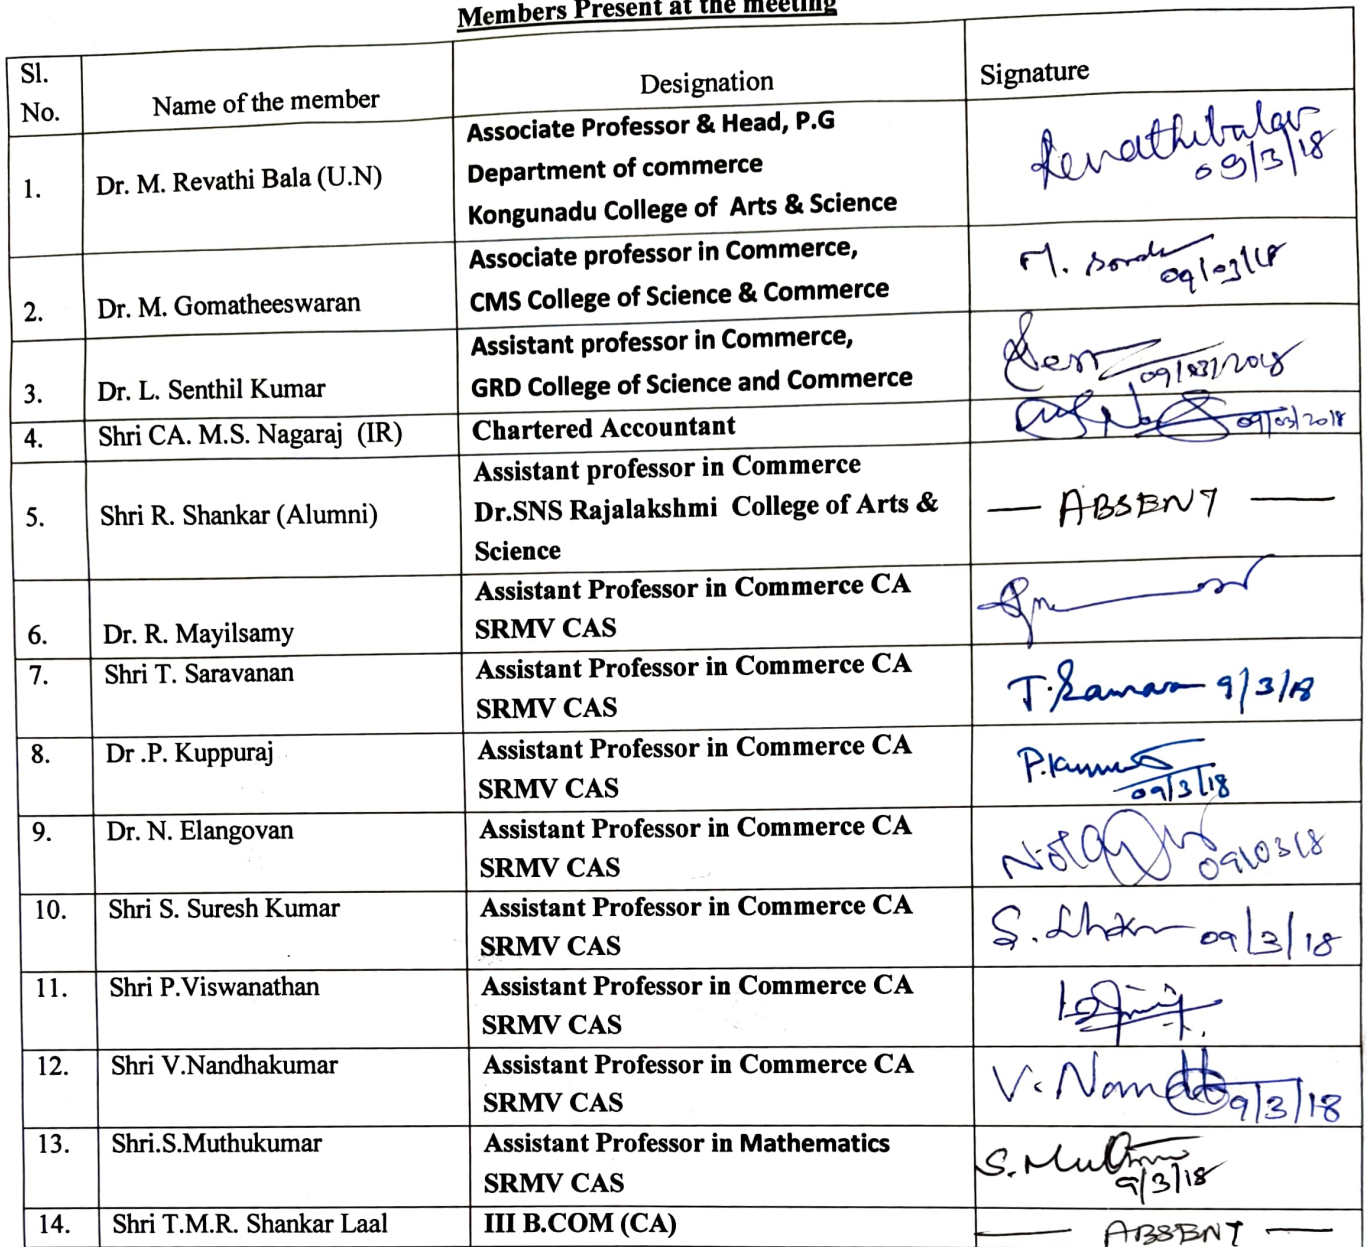 Members Present at the meeting
Sl.
No.
Name of the member
Designation
Signature
1.
Dr. M. Revathi Bala (U.N)
Associate Professor & Head, P.G
Department of commerce
Kongunadu College of Arts & Science
Revathibala
09/3/18
2.
Dr. M. Gomatheeswaran
Associate professor in Commerce,
CMS College of Science & Commerce
09/03/18
3.
Dr. L. Senthil Kumar
Assistant professor in Commerce,
GRD College of Science and Commerce
09/03/2018
4.
Shri CA. M.S. Nagaraj (IR)
Chartered Accountant
09/03/2018
5.
Shri R. Shankar (Alumni)
Assistant professor in Commerce
Dr.SNS Rajalakshmi College of Arts &
Science
— ABSENT —
6.
Dr. R. Mayilsamy
Assistant Professor in Commerce CA
SRMV CAS
7.
Shri T. Saravanan
Assistant Professor in Commerce CA
SRMV CAS
9/3/18
8.
Dr .P. Kuppuraj
Assistant Professor in Commerce CA
SRMV CAS
09/3/18
9.
Dr. N. Elangovan
Assistant Professor in Commerce CA
SRMV CAS
09/03/18
10.
Shri S. Suresh Kumar
Assistant Professor in Commerce CA
SRMV CAS
09/3/18
11.
Shri P.Viswanathan
Assistant Professor in Commerce CA
SRMV CAS
12.
Shri V.Nandhakumar
Assistant Professor in Commerce CA
SRMV CAS
9/3/18
13.
Shri.S.Muthukumar
Assistant Professor in Mathematics
SRMV CAS
9/3/18
14.
Shri T.M.R. Shankar Laal
III B.COM (CA)
— ABSENT —